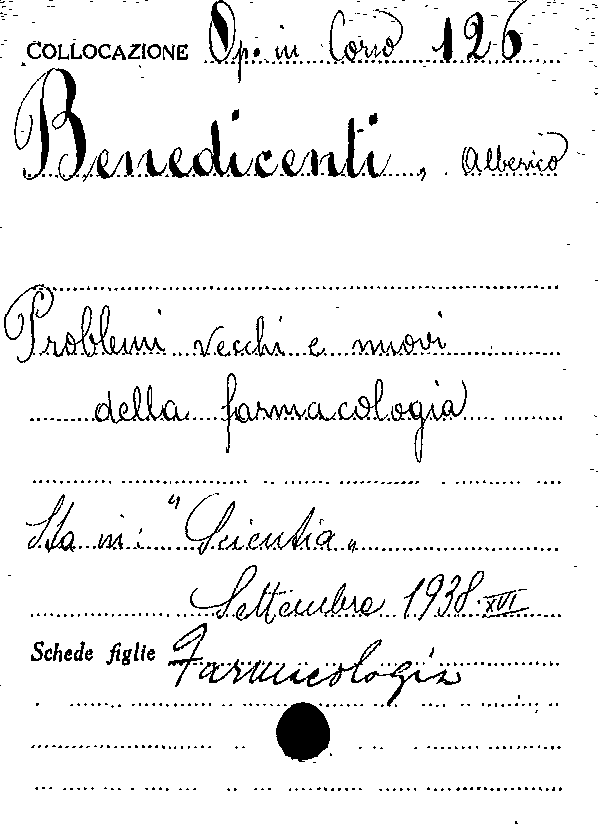 COLLOCAZIONE Op. in Corso 126
Benedicenti, Alberico
Problemi vecchi e nuovi
della farmacologia
Sta in: "Scientia„
Settembre 1938-XVI
Schede figlie Farmacologia